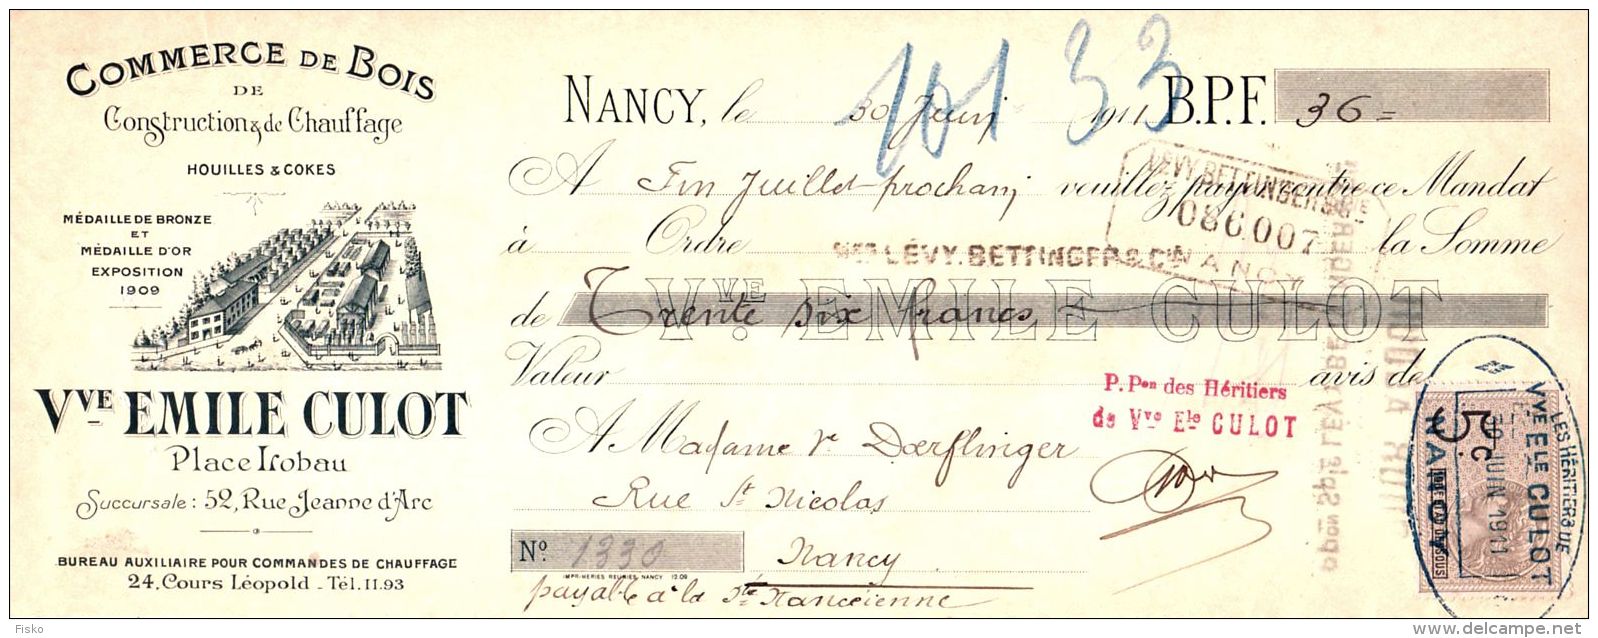 COMMERCE DE BOIS
DE
Construction & de Chauffage
HOUILLES & COKES
MÉDAILLE DE BRONZE
ET
MÉDAILLE D'OR
EXPOSITION
1909
VVE EMILE CULOT
Place Lobau
Succursale : 52, Rue Jeanne d'Arc
BUREAU AUXILIAIRE POUR COMMANDES DE CHAUFFAGE
24, Cours Léopold - Tél. 11.93
101 33
NANCY, le 30 Juin 1911 B.P.F. 36 =
A Fin Juillet prochain veuillez payer contre ce Mandat
LÉVY. BETTINGER & CIE
086007
NANCY
à Ordre LÉVY. BETTINGER & CIE la Somme
de Trente six francs
VVE EMILE CULOT
Valeur avis de
P. Pon des Héritiers
de Vve Ele CULOT
A Madame Ve Dœrflinger
Rue St Nicolas
No 1330 Nancy
IMPRIMERIES REUNIES NANCY 12.09
payable à la Sté Nancéienne
5 c.
LES HÉRITIERS DE
VVE ELE CULOT
30 JUIN 1911
NANCY
Fisko
delcampe.net